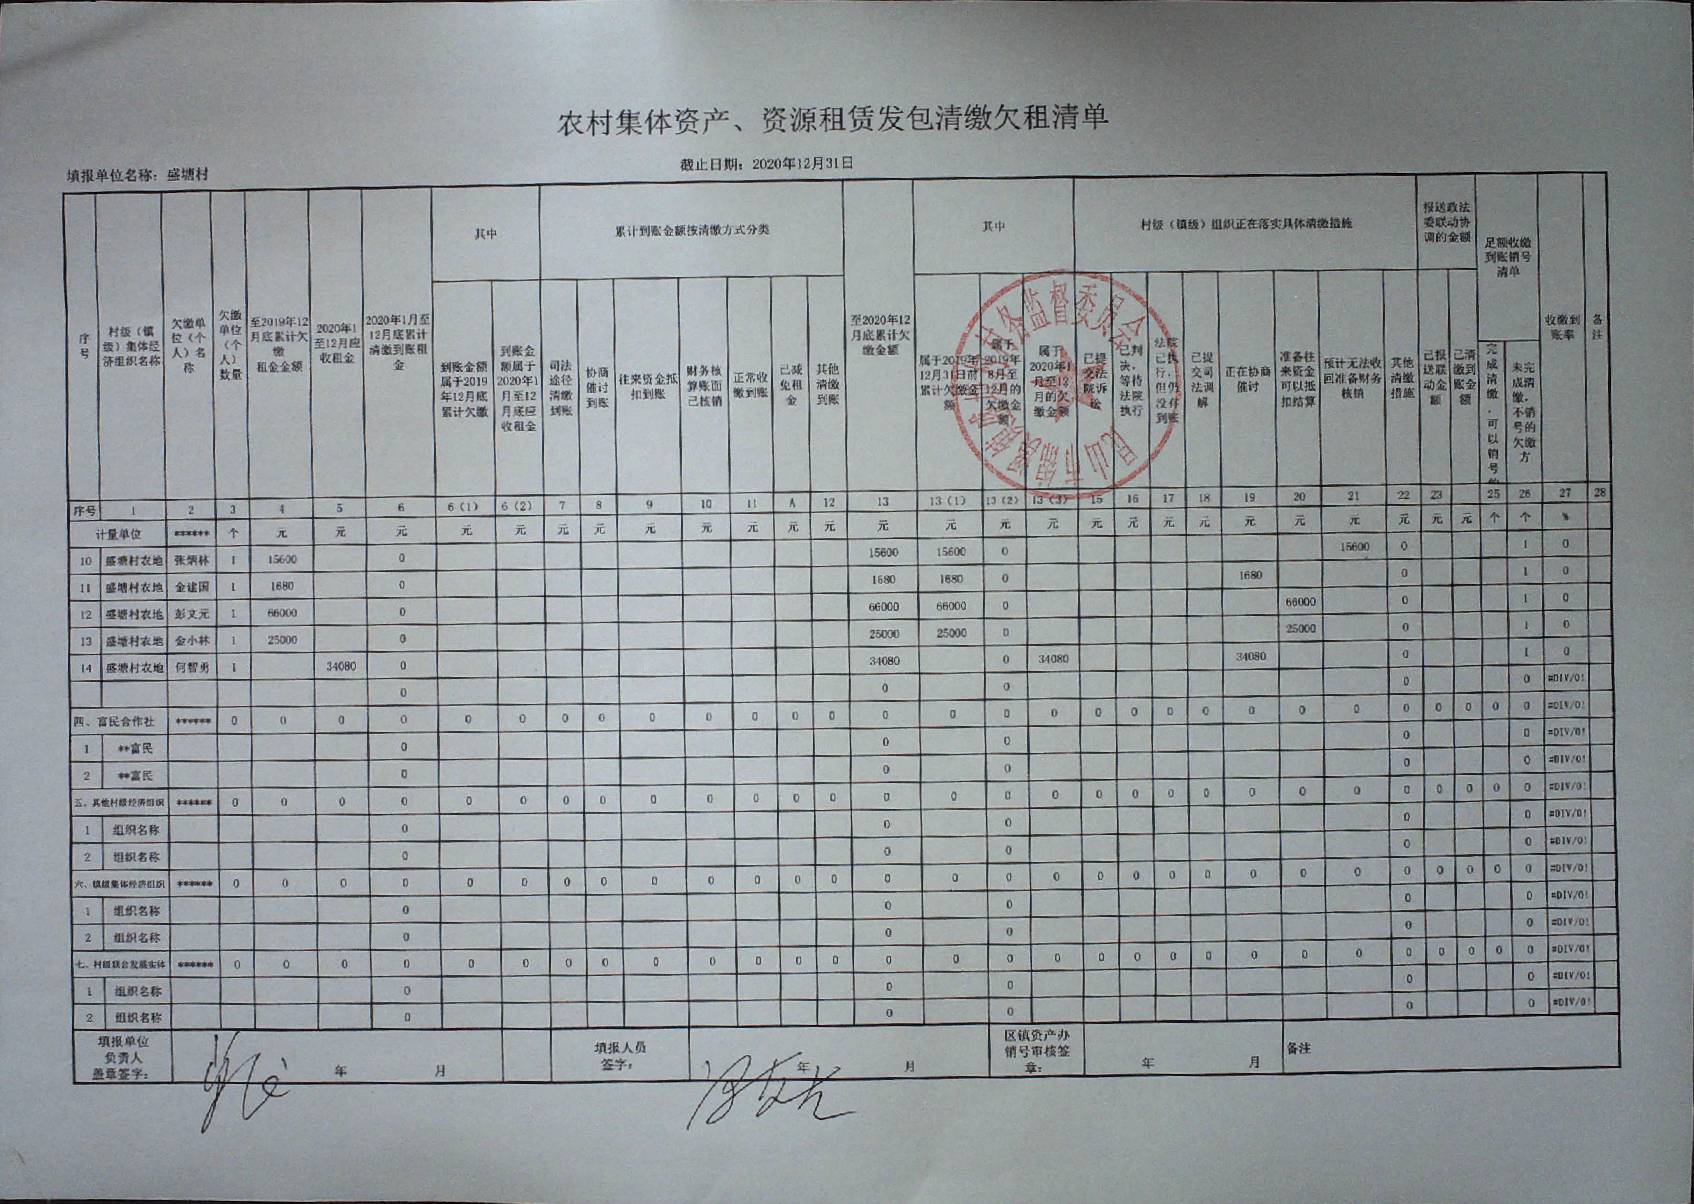 农村集体资产、资源租赁发包清缴欠租清单
截止日期：2020年12月31日
填报单位名称：盛塘村
序号 村级（镇级）集体经济组织名称 欠缴单位（个人）名称 欠缴单位（个人）数量 至2019年12月底累计欠缴租金金额 2020年1至12月应收租金 2020年1月至12月底累计清缴到账租金 其中 累计到账金额按清缴方式分类 至2020年12月底累计欠缴金额 其中 村级（镇级）组织正在落实具体清缴措施 报送政法委联动协调的金额 足额收缴到账销号清单 收缴到账率 备注
到账金额属于2019年12月底累计欠缴 到账金额属于2020年1月至12月底应收租金 司法途径清缴到账 协商催讨到账 往来资金抵扣到账 财务核算账面已核销 正常收缴到账 已减免租金 其他清缴到账 属于2019年12月31日前累计欠缴金额 属于2019年8月至12月的欠缴金额 属于2020年1月至12月的欠缴金额 已提交法院诉讼 已判决，等待法院执行 法院已执行，但仍没有到账 已提交司法调解 正在协商催讨 准备往来资金可以抵扣结算 预计无法收回准备财务核销 其他清缴措施 已报送联动金额 已清缴到账金额 完成清缴，可以销号的 未完成清缴，不销号的欠缴方
序号 1 2 3 4 5 6 6（1） 6（2） 7 8 9 10 11 A 12 13 13（1） 13（2） 13（3） 15 16 17 18 19 20 21 22 23 25 26 27 28
计量单位 ****** 个 元 元 元 元 元 元 元 元 元 元 元 元 元 元 元 元 元 元 元 元 元 元 元 元 元 元 个 个 %
10 盛塘村农地 张炳林 1 15600 0 15600 15600 0 15600 0 1 0
11 盛塘村农地 金建国 1 1680 0 1680 1680 0 1680 0 1 0
12 盛塘村农地 彭文元 1 66000 0 66000 66000 0 66000 0 1 0
13 盛塘村农地 金小林 1 25000 0 25000 25000 0 25000 0 1 0
14 盛塘村农地 何智勇 1 34080 0 34080 0 34080 34080 0 1 0
0 0 0 0 0 #DIV/0!
四、富民合作社 ****** 0 0 0 0 0 0 0 0 0 0 0 0 0 0 0 0 0 0 0 0 0 0 0 0 0 0 0 0 0 #DIV/0!
1 **富民 0 0 0 0 0 #DIV/0!
2 **富民 0 0 0 0 0 #DIV/0!
五、其他村级经济组织 ****** 0 0 0 0 0 0 0 0 0 0 0 0 0 0 0 0 0 0 0 0 0 0 0 0 0 0 0 0 0 #DIV/0!
1 组织名称 0 0 0 0 0 #DIV/0!
2 组织名称 0 0 0 0 0 #DIV/0!
六、镇级集体经济组织 ****** 0 0 0 0 0 0 0 0 0 0 0 0 0 0 0 0 0 0 0 0 0 0 0 0 0 0 0 0 0 #DIV/0!
1 组织名称 0 0 0 0 0 #DIV/0!
2 组织名称 0 0 0 0 0 #DIV/0!
七、村级联合发展实体 ****** 0 0 0 0 0 0 0 0 0 0 0 0 0 0 0 0 0 0 0 0 0 0 0 0 0 0 0 0 0 #DIV/0!
1 组织名称 0 0 0 0 0 #DIV/0!
2 组织名称 0 0 0 0 0 #DIV/0!
填报单位负责人盖章签字： 年 月 填报人员签字： 年 月 区镇资产办销号审核签章： 年 月 备注